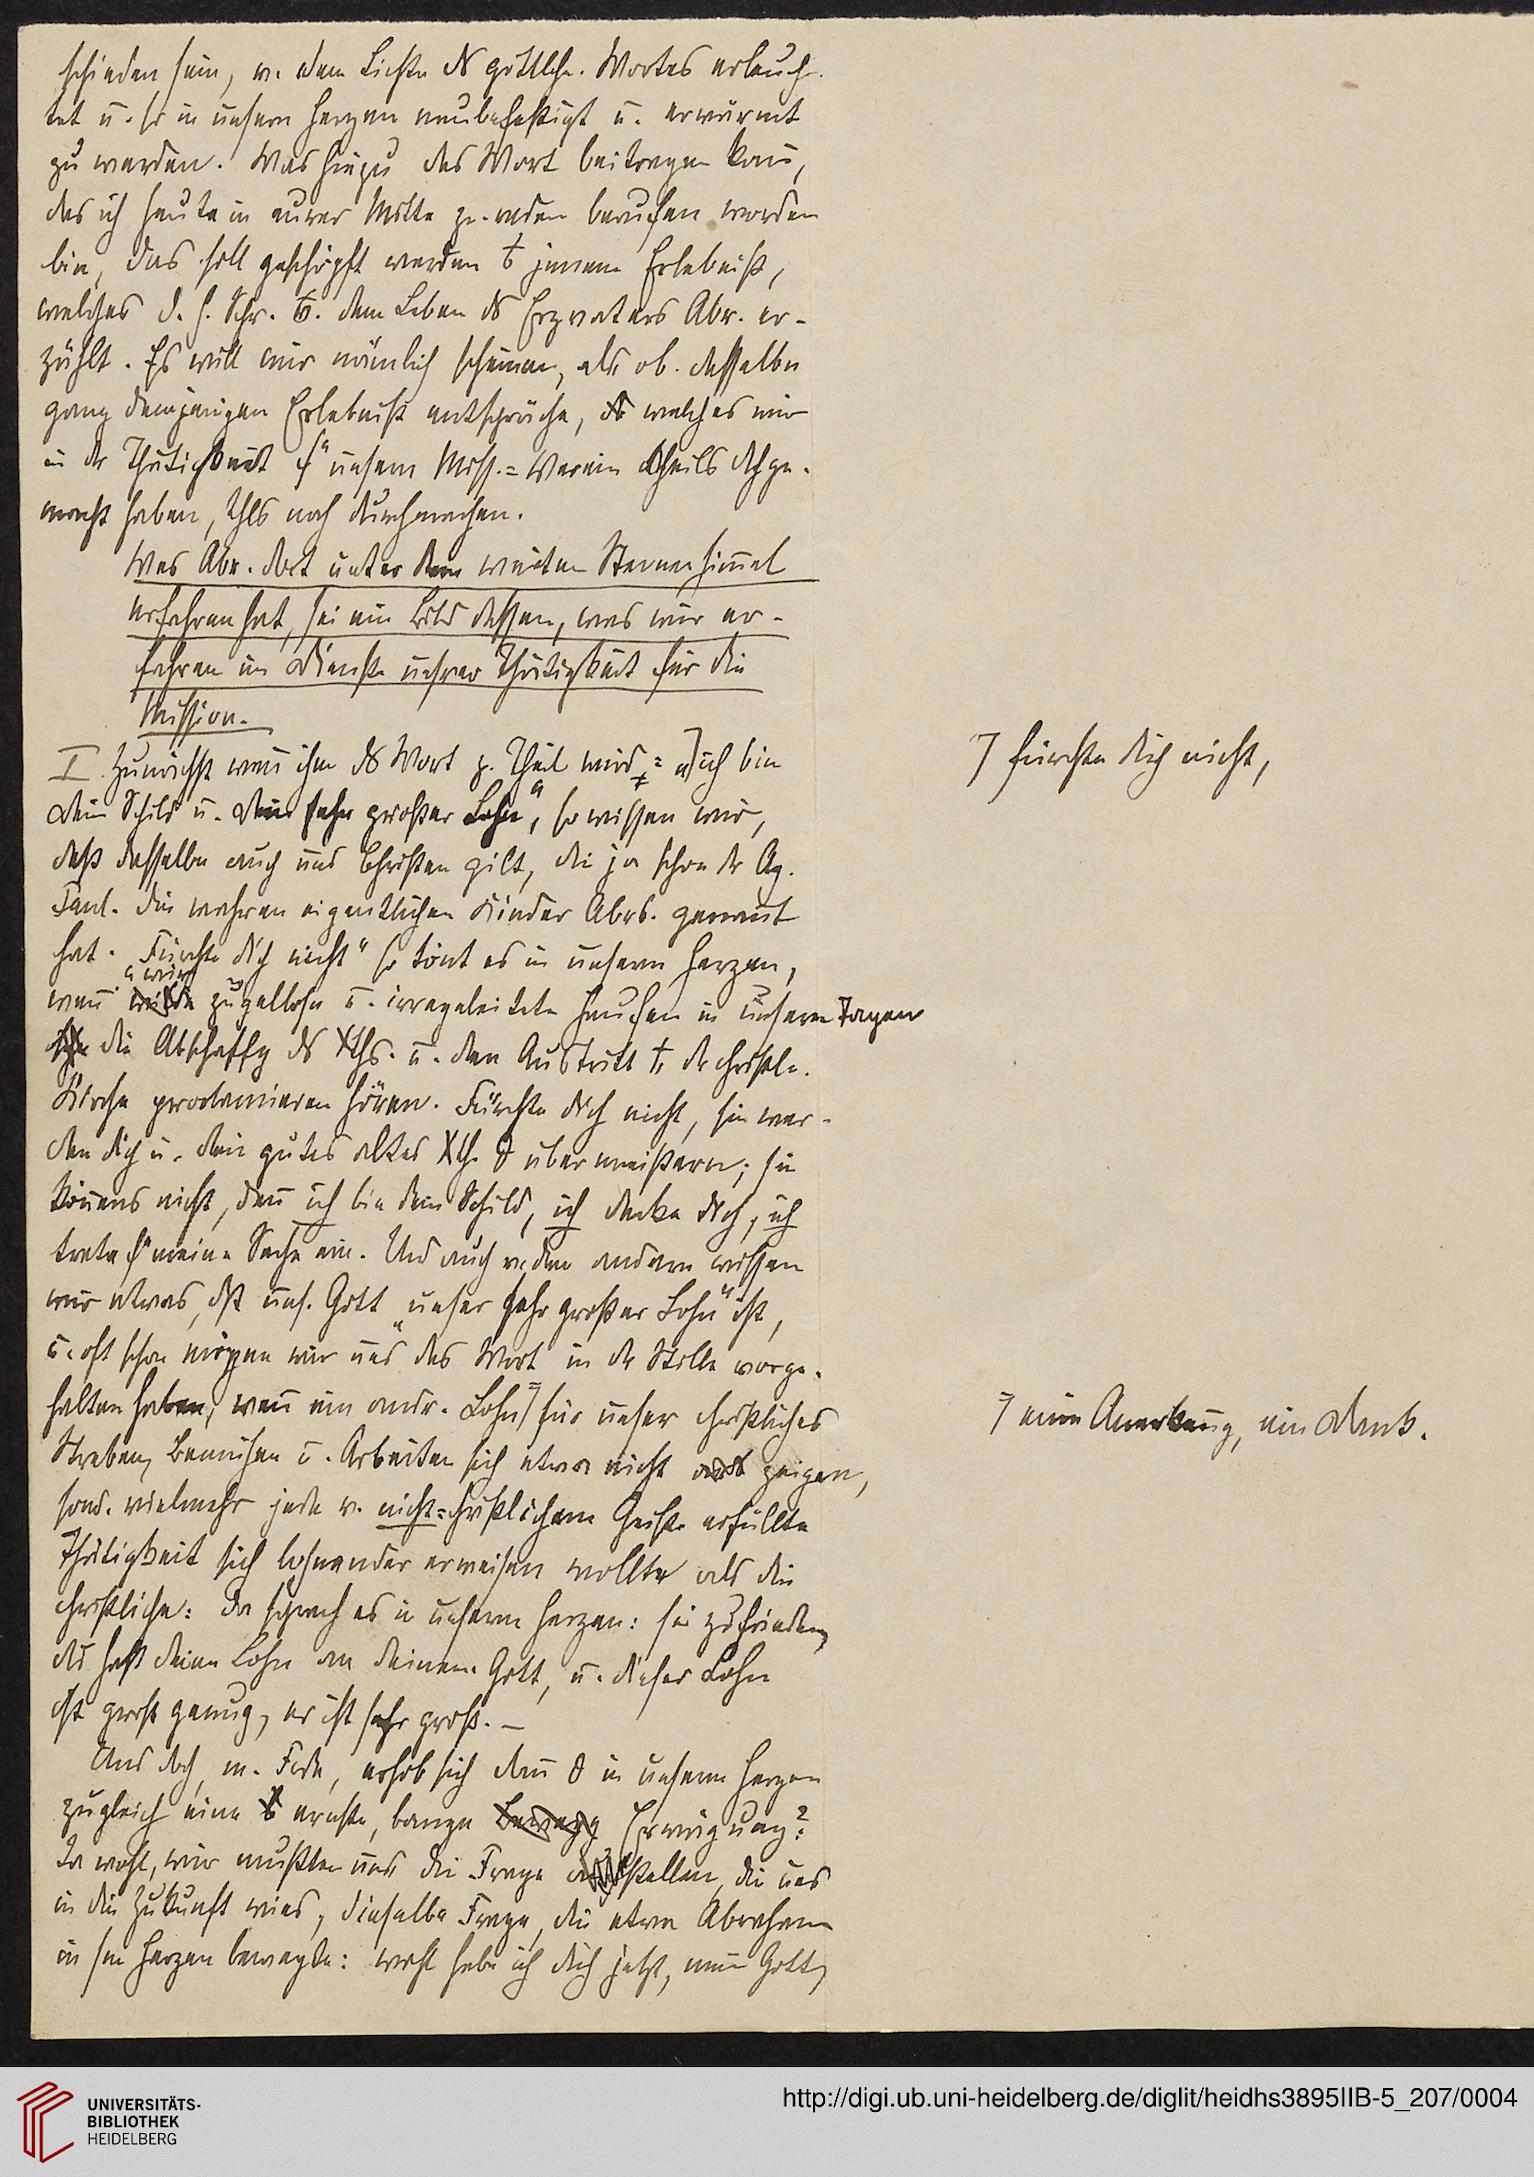 schieden sein, v. dem Lichte ds göttlche. Wortes erleuch-
tet u. so in unsern Herzen neubefestigt u. erwärmt
zu werden. Was hiezu das Wort beitragen kan̄,
das ich heute in eurer Mitte zu reden berufen worden
bin, das soll geschöpft werden jenem Erlebniß,
welches d. h. Schr. dem Leben ds Erzvaters Abr. er-
zählt. Es will mir nämlich scheinen, als ob dasselbe
ganz demjenigen Erlebniß entspräche, welches wir
in dr Thätigkeit f" unsern Miss.=Verein theils dchge-
macht haben, thls noch durchmachen.
Was Abr. dort unter dem weiten Sternenhim̄el
erfahren hat, sei ein Bild dessen, was wir er-
fahren im Dienste unsrer Thätigkeit für die
Mission.
I. Zunächst wen̄ ihm ds Wort z. Theil wird: „⁊ ich bin
⁊ fürchte dich nicht,
dein Schild u. dein sehr großer Lohn“, so wissen wir,
daß dasselbe auch uns Christen gilt, die ja schon dr Ap.
Paul. die wahren eigentlichen Kinder Abrs. genan̄t
hat. „Fürchte dich nicht“ so tönt es in unserm Herzen,
wen̄ wir zügellose u. irregeleitete Haufen in unsern Tagen
die Abschaffg ds Xths. u. den Austritt dr christle.
Kirche proclamieren hören. Fürchte dich nicht, sie wer-
den dich u. dein gutes altes Xth. übermeistern; sie
kön̄ens nicht, den̄ ich bin dein Schild, ich decke dich, ich
trete f" meine Sache ein. Und auch v. dem andern wissen
wir etwas, dß uns. Gott „unser sehr großer Lohn“ ist,
u. oft schon mögen wir uns das Wort in dr Stille vorge-
halten haben, wen̄ ein andr. Lohn ⁊ für unser christliches
⁊ eine Anerken̄ug, ein Dank.
Streben, Bemühen u. Arbeiten sich etwa nicht zeigen,
sond. vielmehr jede v. nicht=christlichem Geiste erfüllte
Thätigkeit sich lohnender erweisen wollte als die
christliche: da sprach es in unserm Herzen: sei zufrieden,
du hast deinen Lohn an deinem Gott, u. dieser Lohn
ist groß genug, er ist sehr groß. —
Und doch, m. Frde, erhob sich den̄ in unserm Herzen
zugleich eine ernste, bange Erwägung?
Ja wohl, wir mußten uns die Frage stellen, die uns
in die Zukunft wies, dieselbe Frage, die etwa Abraham
in sm Herzen bewegte: wohl habe ich dich jetzt, mein Gott,
UNIVERSITÄTS-
BIBLIOTHEK
HEIDELBERG
http://digi.ub.uni-heidelberg.de/diglit/heidhs3895IIB-5_207/0004